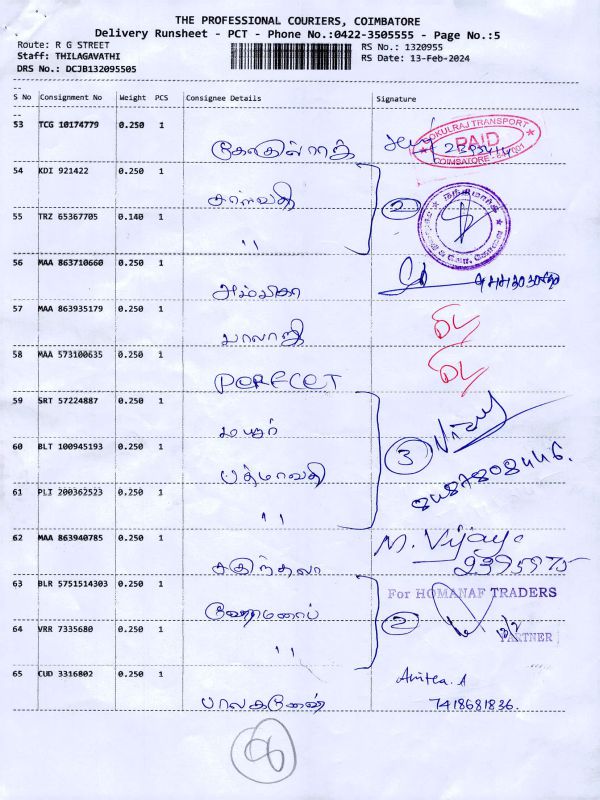 THE PROFESSIONAL COURIERS, COIMBATORE
Delivery Runsheet - PCT - Phone No.:0422-3505555 - Page No.:5
Route: R G STREET
RS No.: 1320955
Staff: THILAGAVATHI
RS Date: 13-Feb-2024
DRS No.: DCJB132095505
S No Consignment No Weight PCS Consignee Details Signature
53 TCG 10174779 0.250 1
GOKULRAJ TRANSPORT
PAID
54 KDI 921422 0.250 1
பார்வதி
2
55 TRZ 65367705 0.140 1
"
56 MAA 863710660 0.250 1
அம்பிகா
57 MAA 863935179 0.250 1
பாலாஜி
DL
58 MAA 573100635 0.250 1
PERFECT
DL
59 SRT 57224887 0.250 1
3
60 BLT 100945193 0.250 1
பத்மாவதி
61 PLI 200362523 0.250 1
"
62 MAA 863940785 0.250 1
சகுந்தலா
M. Vijaya
2395975
63 BLR 5751514303 0.250 1
ஹோமனாப்
For HOMANAF TRADERS
2
64 VRR 7335680 0.250 1
"
PARTNER
65 CUD 3316802 0.250 1
பாலகணேஷ்
7418681836.